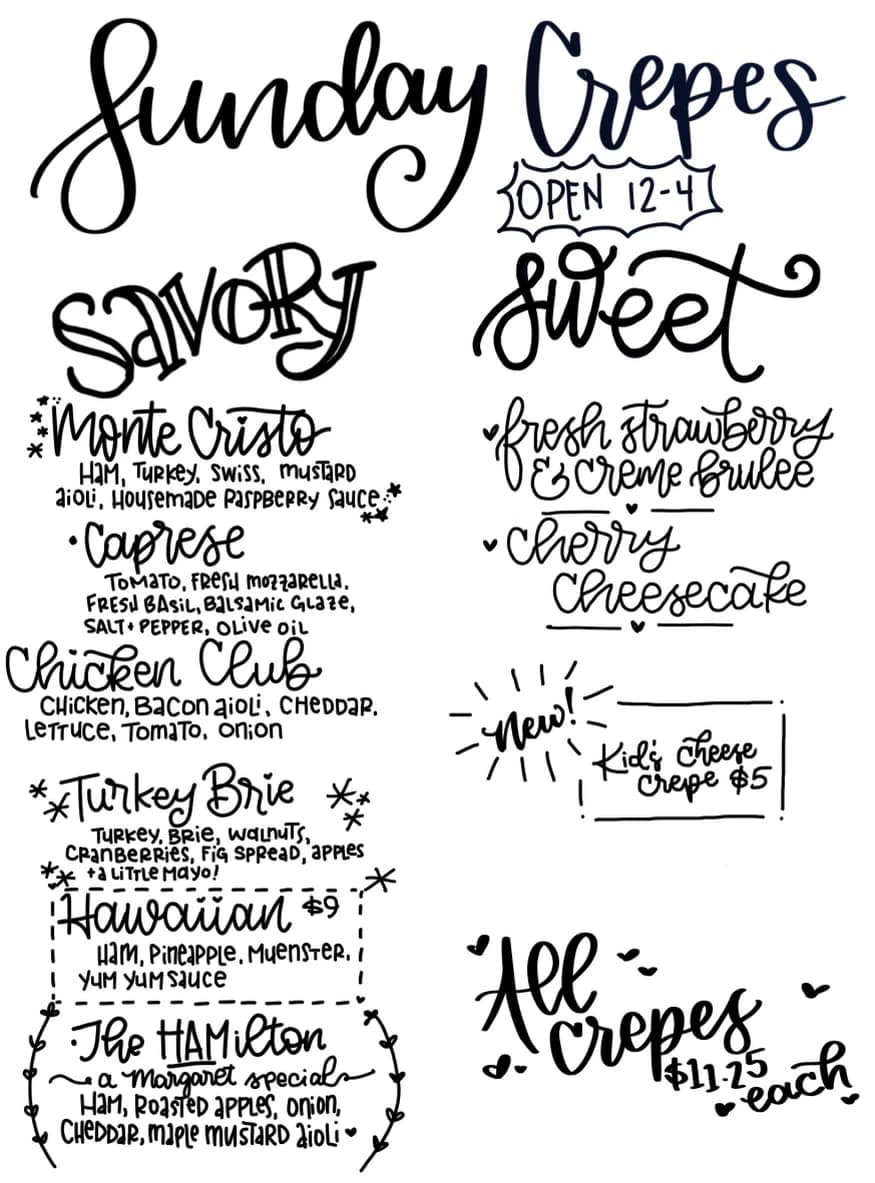 Sunday Crepes
OPEN 12-4
SAVORY
Monte Cristo
Ham, Turkey, Swiss, mustard
aioli, Housemade Raspberry Sauce
Caprese
Tomato, Fresh mozzarella,
Fresh Basil, Balsamic Glaze,
Salt + Pepper, Olive oil
Chicken Club
Chicken, Bacon aioli, Cheddar,
Lettuce, Tomato, Onion
Turkey Brie
Turkey, Brie, walnuts,
Cranberries, Fig Spread, apples
+ a little mayo!
Hawaiian $9
Ham, Pineapple, Muenster,
Yum Yum Sauce
The HAMilton
a Margaret special
Ham, Roasted apples, onion,
Cheddar, maple mustard aioli
Sweet
fresh strawberry
& creme brulee
Cherry
Cheesecake
New!
Kid's Cheese
Crepe $5
All
Crepes
$11.25
each